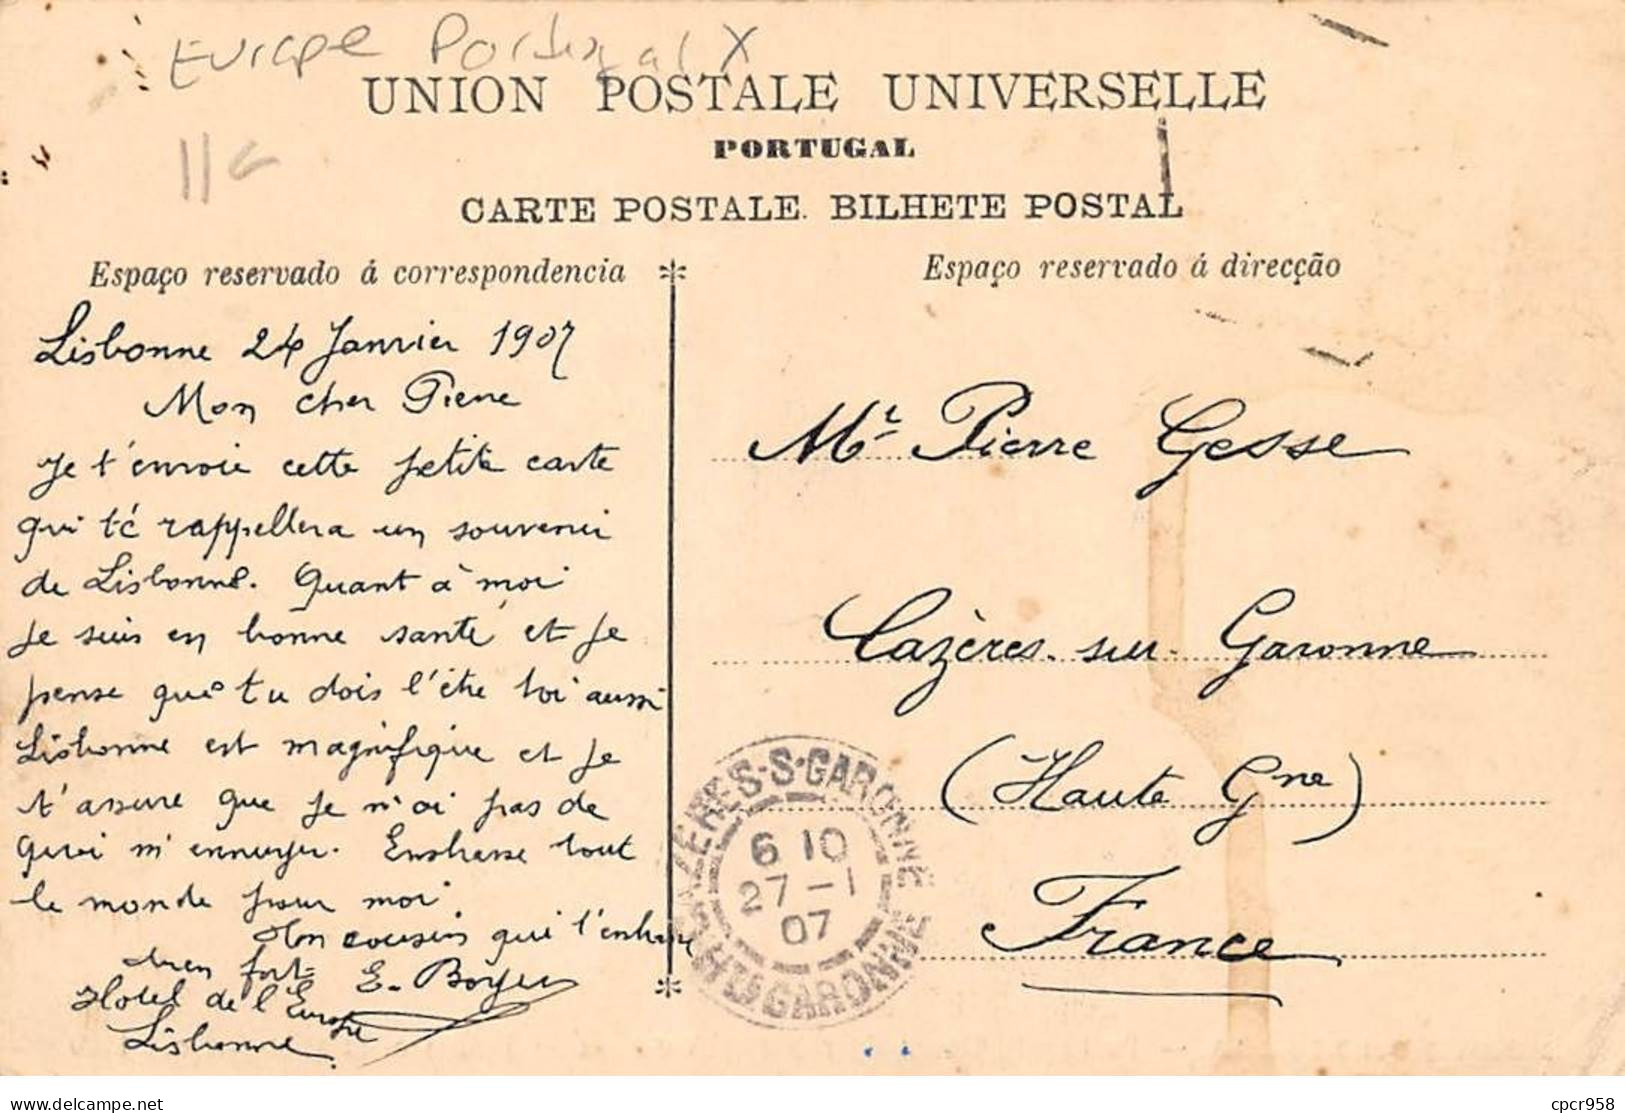 Europe Portugal X
UNION POSTALE UNIVERSELLE
PORTUGAL
CARTE POSTALE. BILHETE POSTAL
Espaço reservado á correspondencia
Lisbonne 24 Janvier 1907
Mon cher Pierre
Je t'envoie cette petite carte
qui té rappellera un souvenir
de Lisbonne. Quant à moi
je suis en bonne santé et je
pense que tu dois l'être toi aussi
Lisbonne est magnifique et je
t'assure que je n'ai pas de
quoi m'ennuyer. Embrasse tout
le monde pour moi
Ton cousin qui t'embrasse
bien fort
E. Boyer
Hotel de l'Europe
Lisbonne
Espaço reservado á direcção
Mr Pierre Gesse
Cazères-sur-Garonne
(Haute Gne)
France
CAZERES-S-GARONNE
6 10
27 - 1
07
HTE GARONNE
delcampe.net
cpcr958